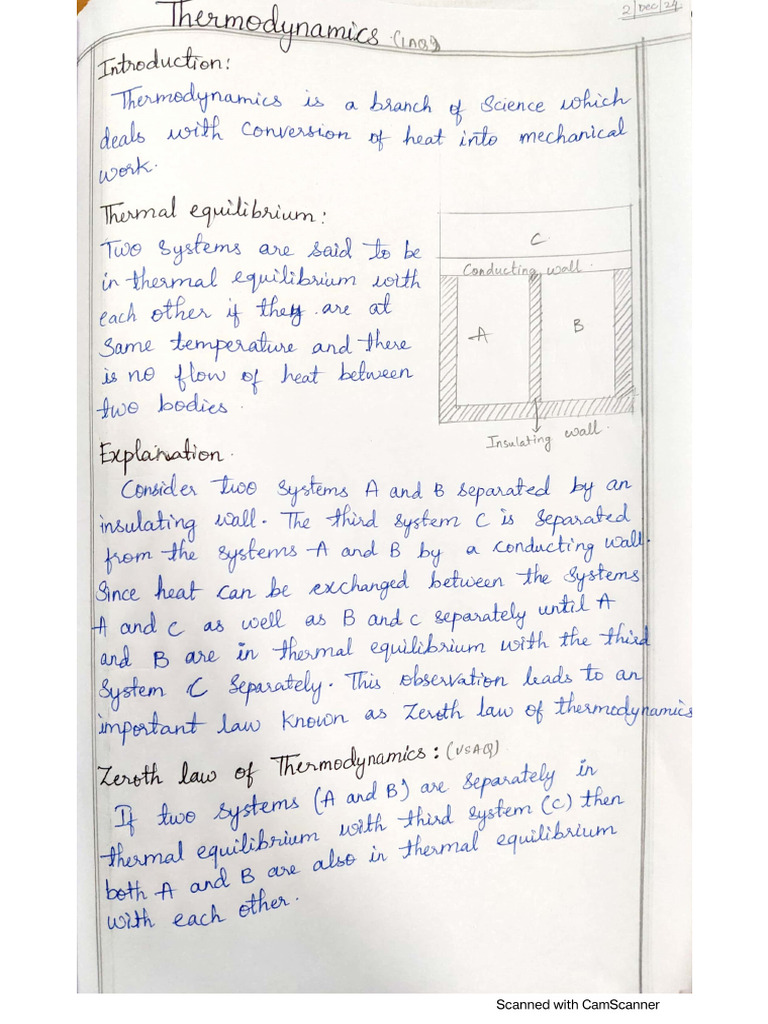 2/Dec/24
Thermodynamics (LAQ)
Introduction:
Thermodynamics is a branch of Science which
deals with Conversion of heat into mechanical
work.
Thermal equilibrium:
Two systems are said to be
in thermal equilibrium with
each other if they are at
Same temperature and there
is no flow of heat between
two bodies.
C
Conducting wall.
A
B
Insulating wall.
Explanation.
Consider two systems A and B separated by an
insulating wall. The third system C is separated
from the systems A and B by a conducting wall.
Since heat can be exchanged between the systems
A and C as well as B and C separately until A
and B are in thermal equilibrium with the third
System C separately. This observation leads to an
important law known as Zeroth law of thermodynamics
Zeroth law of Thermodynamics: (VSAQ)
If two systems (A and B) are separately in
thermal equilibrium with third system (C) then
both A and B are also in thermal equilibrium
with each other.
Scanned with CamScanner